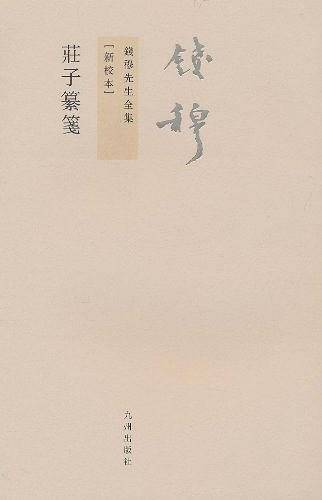 錢穆
錢穆先生全集
［新校本］
莊子纂箋
九州出版社